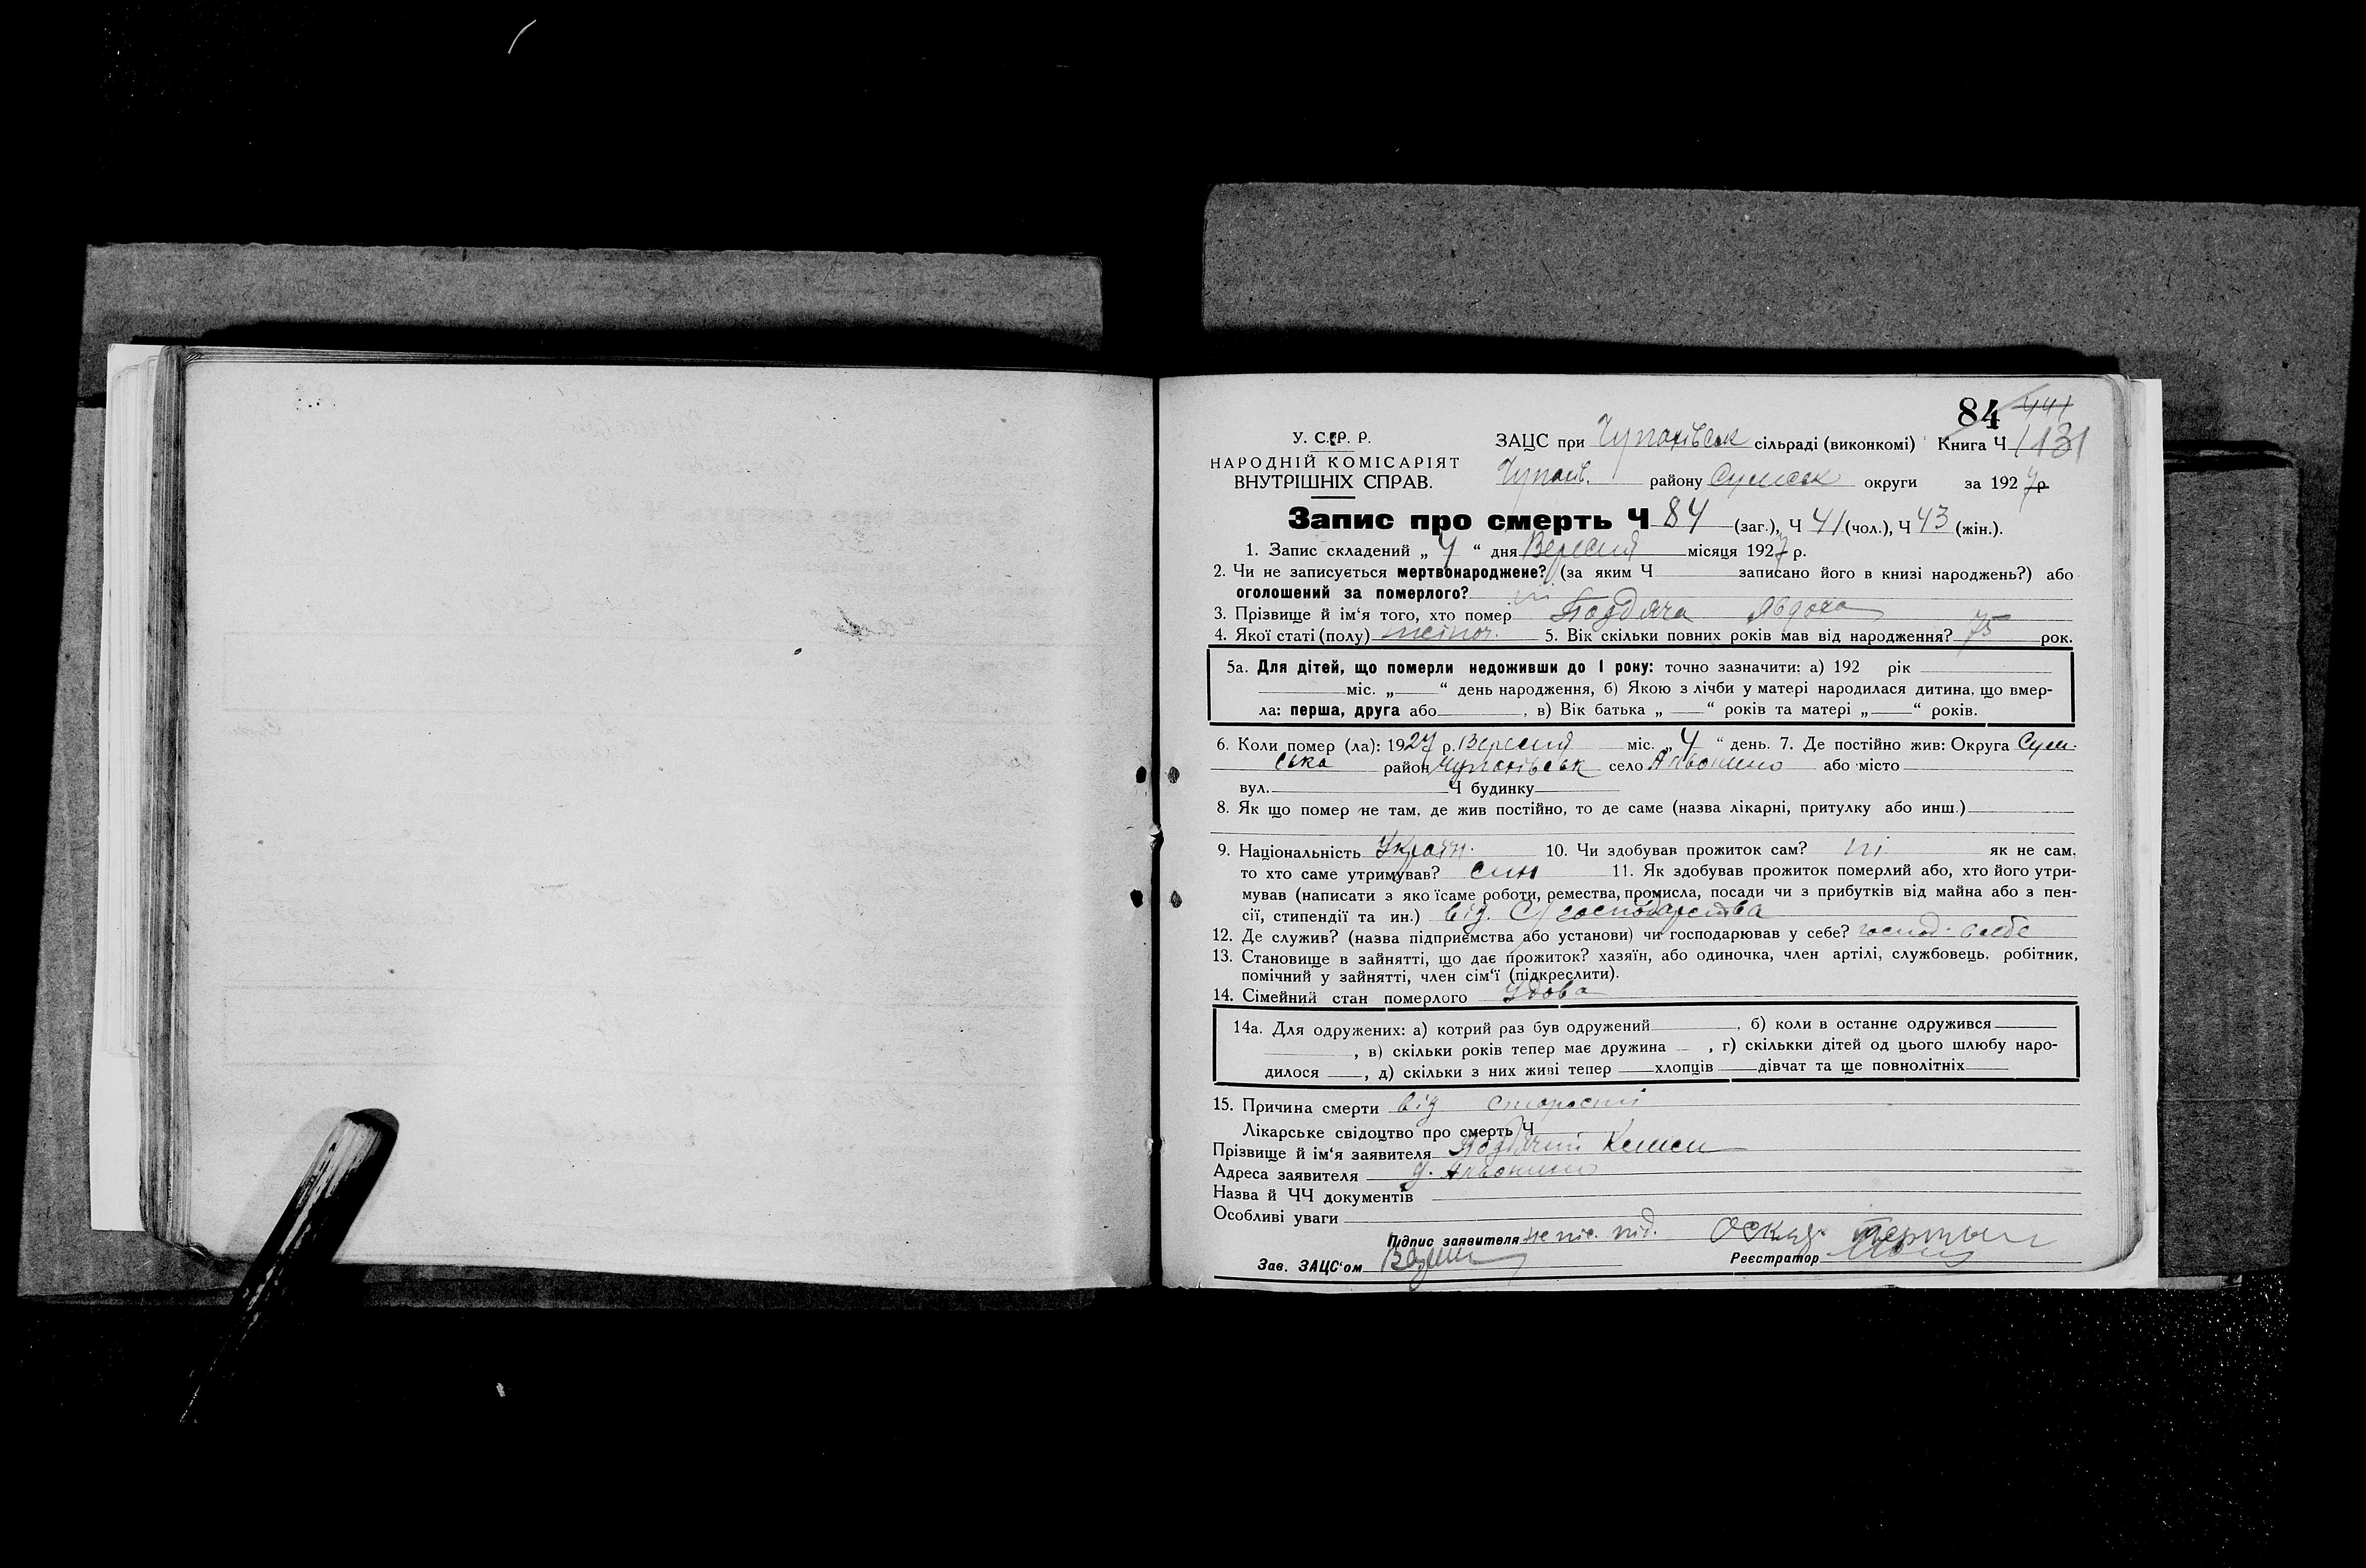 84 441
У. С. Р. Р. ЗАЦС при Чупахівськ сільраді (виконкомі) Книга Ч 1131
НАРОДНІЙ КОМІСАРІЯТ
ВНУТРІШНІХ СПРАВ. Чупахів. району Сумськ округи за 1927 р
Запис про смерть Ч 84 (заг.), Ч 41 (чол.), Ч 43 (жін.).
1. Запис складений „ 4 “ дня Вересня місяця 1927 р.
2. Чи не записується мертвонароджене? (за яким Ч записано його в книзі народжень?) або
оголошений за померлого? ні
3. Прізвище й ім‘я того, хто помер Подяча Явдоха
4. Якої статі (полу) жіноч. 5. Вік скільки повних років мав від народження? 75 рок.
5а. Для дітей, що померли недоживши до 1 року: точно зазначити: а) 192 рік
міс. „ “ день народження, б) Якою з лічби у матері народилася дитина, що вмер-
ла: перша, друга або , в) Вік батька „ “ років та матері „ “ років.
6. Коли помер (ла): 1927 р. Вересня міс. „ 4 “ день. 7. Де постійно жив: Округа Сум-
ська район Чупахівськ село або місто
вул. Ч будинку
8. Як що помер не там, де жив постійно, то де саме (назва лікарні, притулку або инш.)
9. Національність Україн. 10. Чи здобував прожиток сам? ні як не сам,
то хто саме утримував? син 11. Як здобував прожиток померлий або, хто його утри-
мував (написати з яко їсаме роботи, ремества, промисла, посади чи з прибутків від майна або з пен-
сії, стипендії та ин.) від. С/господарства
12. Де служив? (назва підприємства або установи) чи господарював у себе? господ. в себе
13. Становище в зайнятті, що дає прожиток? хазяїн, або одиночка, член артілі, службовець, робітник,
помічний у зайнятті, член сім‘ї (підкреслити).
14. Сімейний стан померлого Удова
14а. Для одружених: а) котрий раз був одружений , б) коли в останнє одружився
, в) скільки років тепер має дружина , г) скількки дітей од цього шлюбу наро-
дилося , д) скільки з них живі тепер хлопців дівчат та ще повнолітніх
15. Причина смерти від старости
Лікарське свідоцтво про смерть Ч
Прізвище й ім‘я заявителя Подячий
Адреса заявителя
Назва й ЧЧ документів
Особливі уваги
Підпис заявителя
Зав. ЗАЦС‘ом Реєстратор